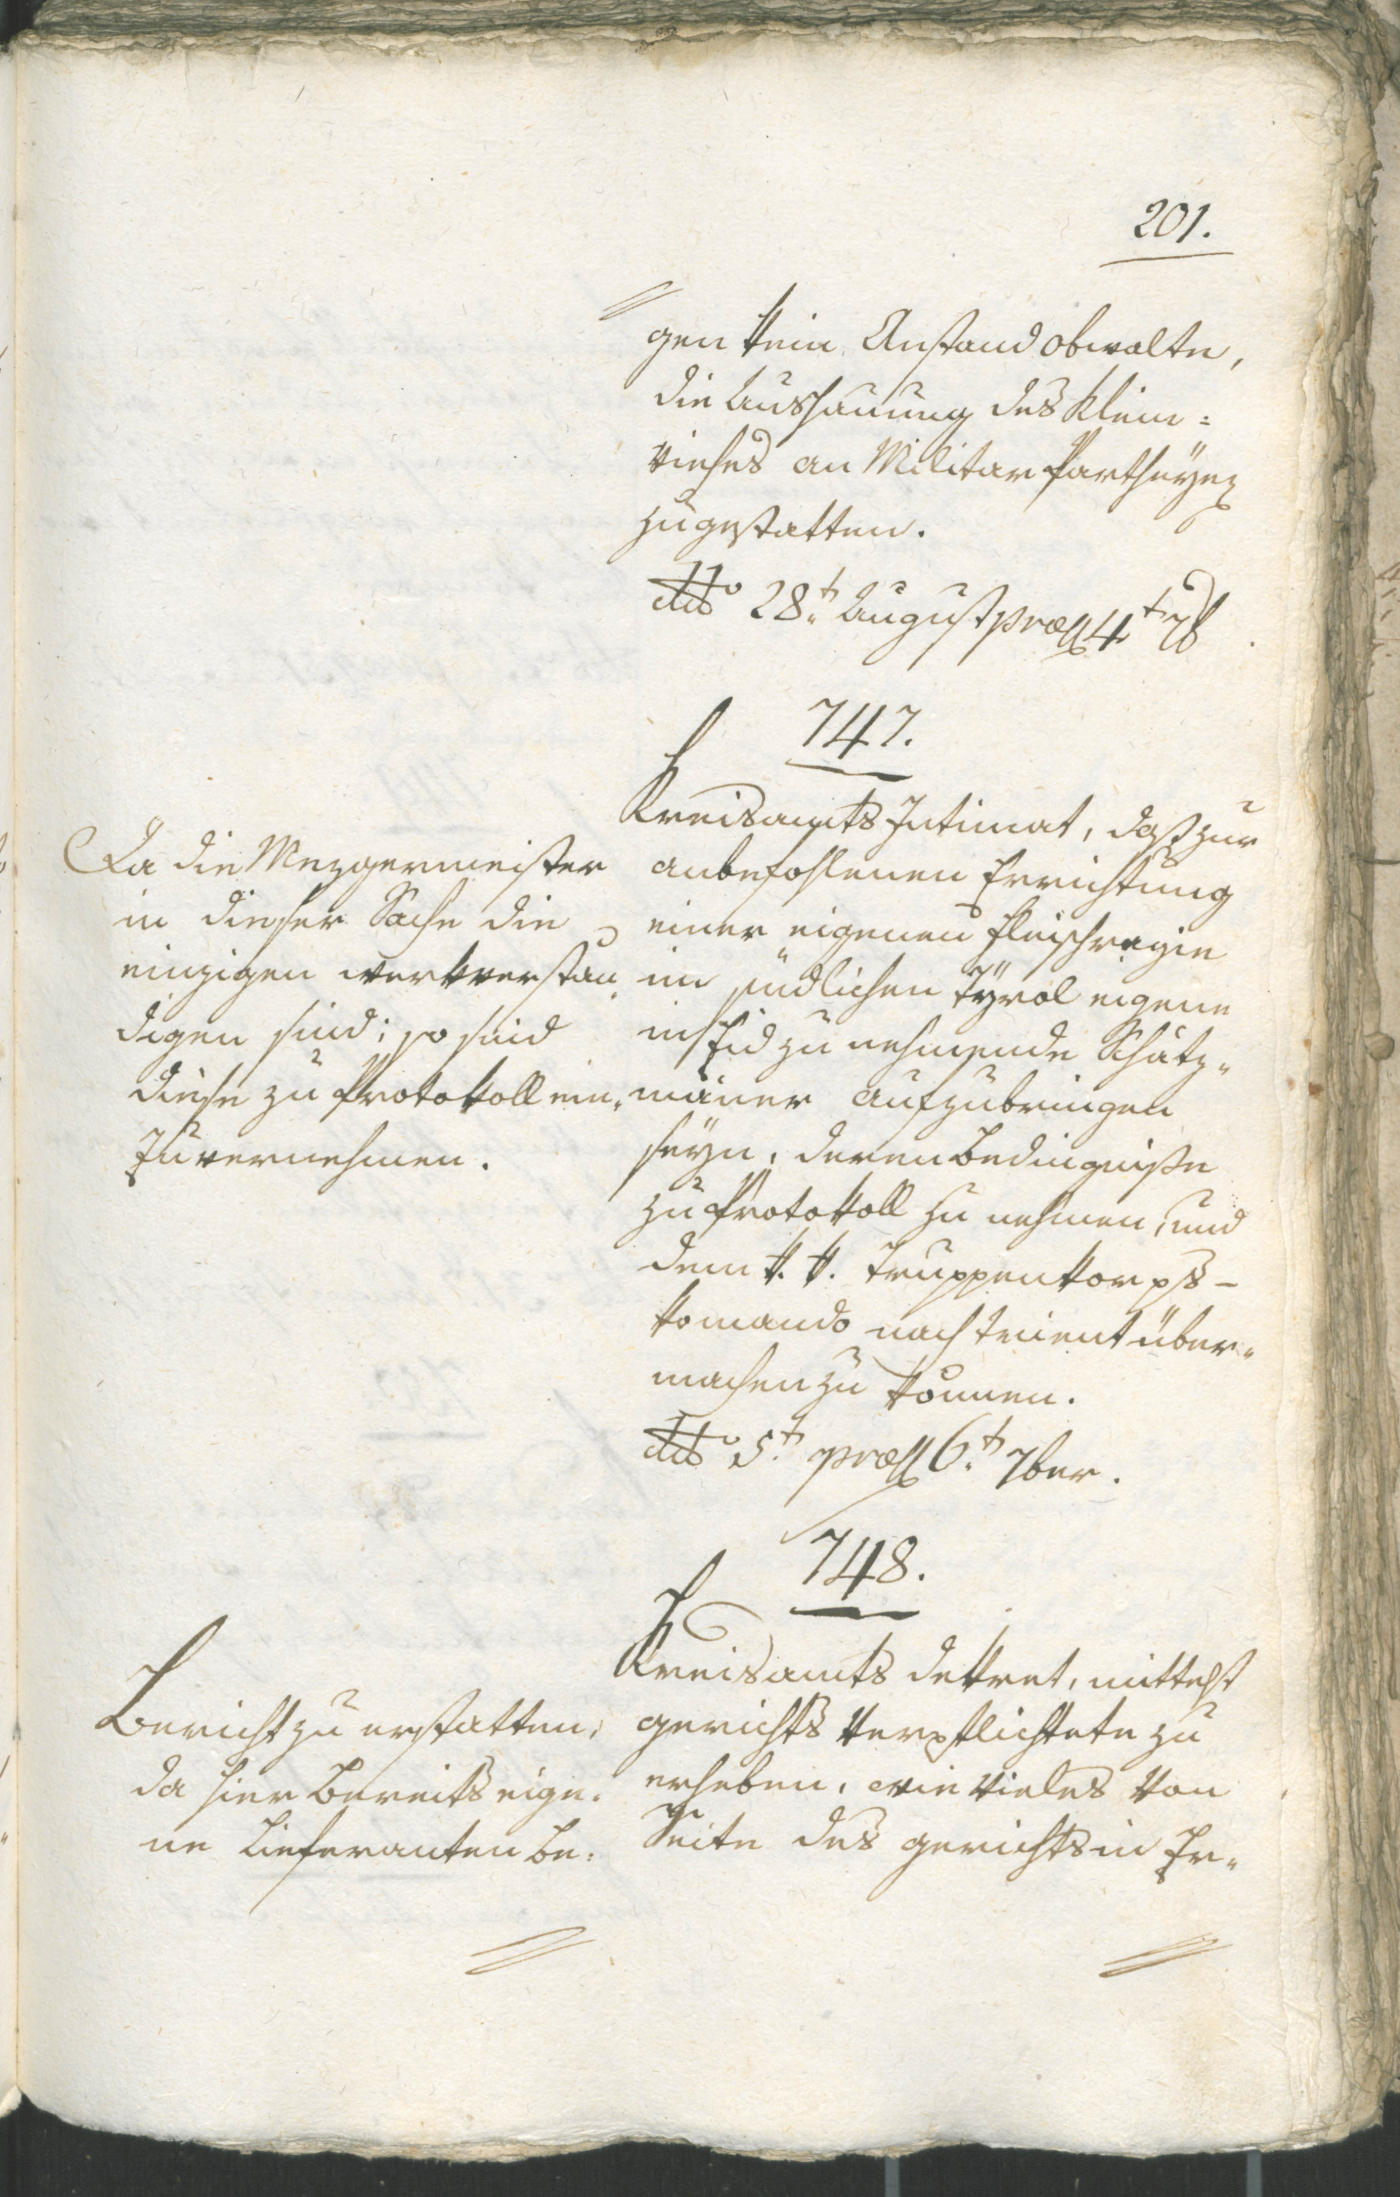 201.
gen kein Anstand obwalte,
die Aushauung des Klein=
viehes an Militar Partheyen
zugestatten.
ddto 28t. August præs 4t 7b
747.
Kreisamts Intimat, daß zur
anbefohlenen Errichtung
einer eigenen Fleischregie
im südlichen Tÿrol eigene
in Eid zu nehmende Schätz„
mäner aufzubringen
seyn, deren Bedingniße
zu Protokoll zu nehmen, und
dem k. k. Truppenkorps-
komando nach Trient über„
machen zu können.
ddto 5t. præs 6t. 7ber.
Da die Mezgermeister
in dieser Sache die
einzigen werkverstän„
digen sind; so sind
diese zu Protokoll ein„
zuvernehmen.
748.
Kreisamts Dekret, mittelst
gerichts Verpflichtete zu
erheben, wie vieles von
Seite des gerichts in Er„
Bericht zu erstatten,
da hier bereits eige„
ne Lieferanten be„